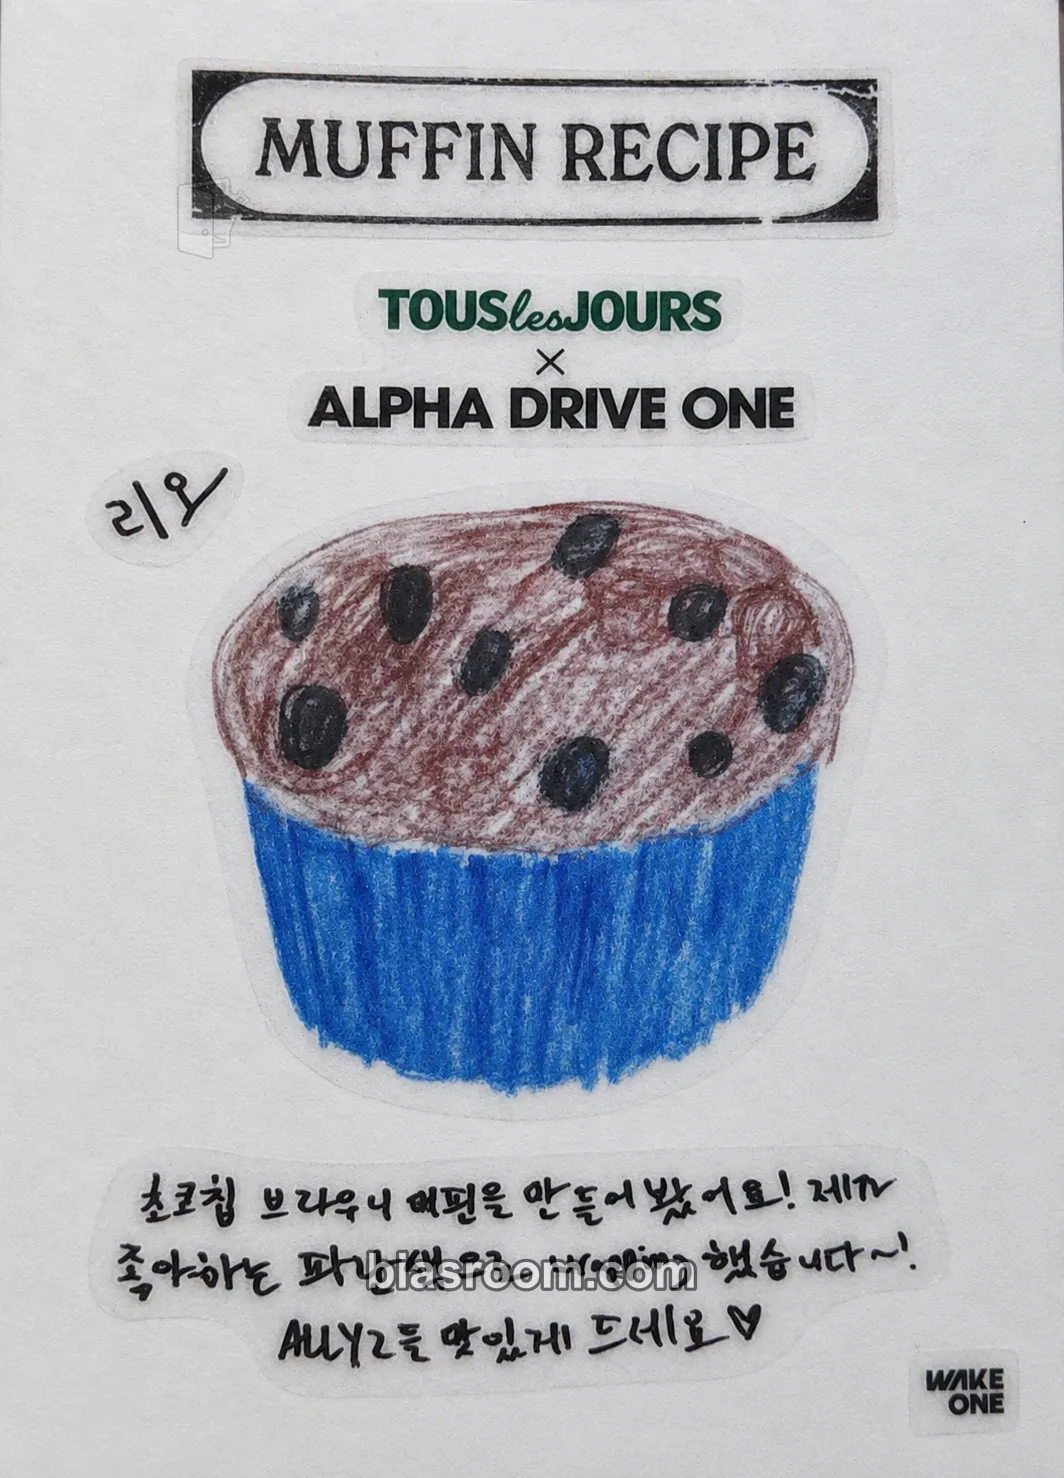 MUFFIN RECIPE
TOUS les JOURS
×
ALPHA DRIVE ONE
리오
초코칩 브라우니 머핀을 만들어 봤어요! 제가
좋아하는 파란색으로 wrapping 했습니다~!
biasroom.com
ALLYZ들 맛있게 드세요♡
WAKE
ONE